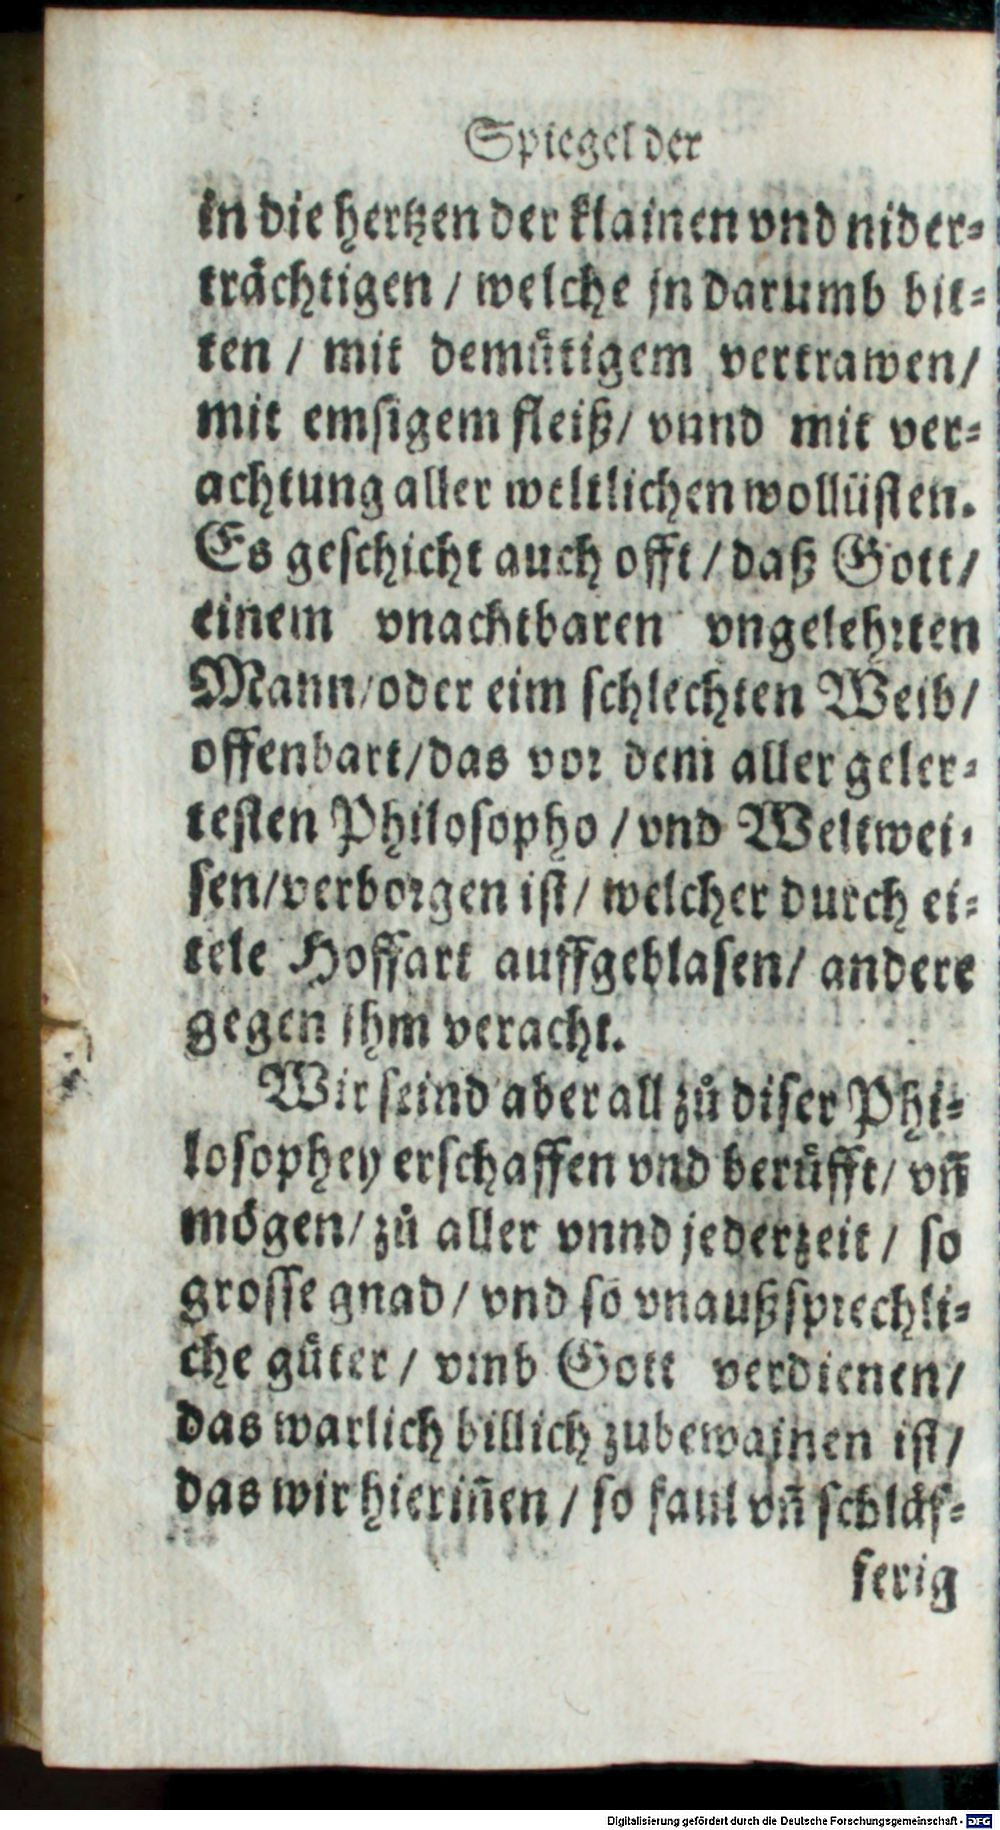 Spiegel der
in die hertzen der klainen vnd nider-
trächtigen / welche jn darumb bit-
ten / mit demuͤtigem vertrawen/
mit emsigem fleiß/ vnnd mit ver-
achtung aller weltlichen wollüsten.
Es geschicht auch offt / daß Gott/
einem vnachtbaren vngelehrten
Mann/oder eim schlechten Weib/
offenbart/das vor dem aller geler-
testen Philosopho / vnd Weltwei-
sen/verborgen ist/ welcher durch ei-
tele Hoffart auffgeblasen/ andere
gegen ihm veracht.
Wir seind aber all zuͦ diser Phi-
losophey erschaffen vnd beruͤfft/ vñ
moͤgen/ zuͦ aller vnnd jederzeit / so
grosse gnad / vnd so vnaußsprechli-
che guͤter / vmb Gott verdienen/
das warlich billich zubewainen ist/
das wir hieriñen / so faul vñ schlaͤf-
ferig
Digitalisierung gefördert durch die Deutsche Forschungsgemeinschaft - DFG